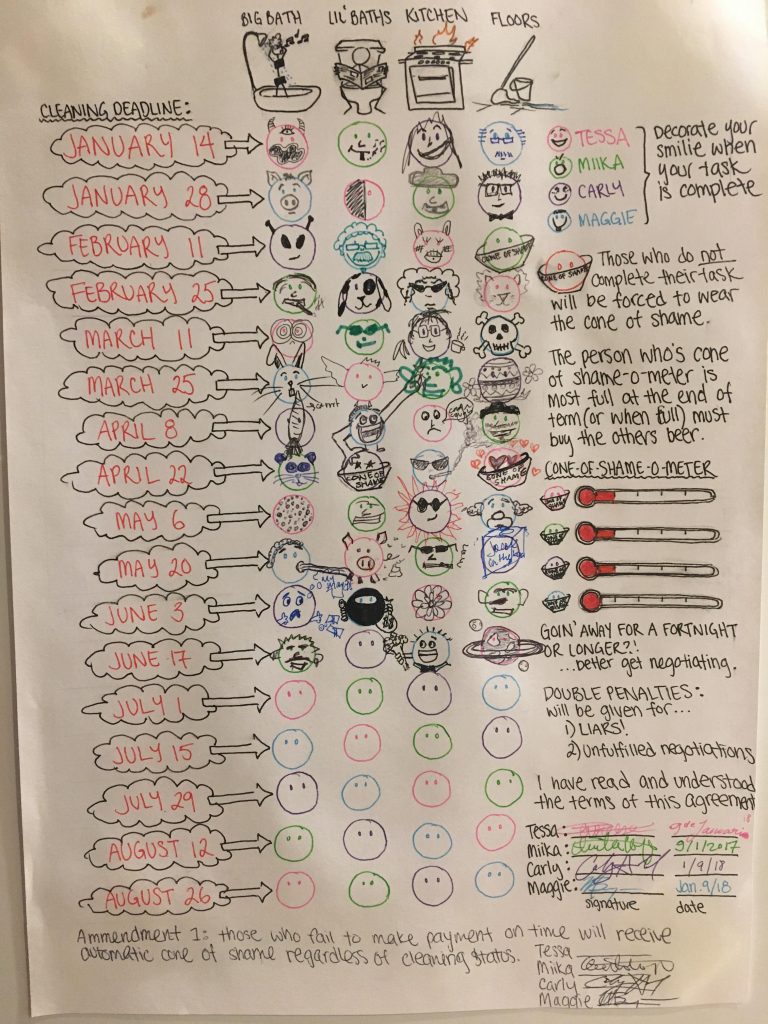 BIG BATH LIL' BATHS KITCHEN FLOORS
CLEANING DEADLINE:
JANUARY 14
JANUARY 28
FEBRUARY 11
CONE OF SHAME
FEBRUARY 25
MARCH 11
MARCH 25
APRIL 8
APRIL 22
CONE OF SHAME
CONE OF SHAME
MAY 6
MAY 20
JUNE 3
JUNE 17
JULY 1
JULY 15
JULY 29
AUGUST 12
AUGUST 26
TESSA
MIIKA
CARLY
MAGGIE
Decorate your
smilie when
your task
is complete
CONE OF SHAME
Those who do not
complete their task
will be forced to wear
the cone of shame.
The person who's cone
of shame-o-meter is
most full at the end of
term (or when full) must
buy the others beer.
CONE-OF-SHAME-O-METER
GOIN' AWAY FOR A FORTNIGHT
OR LONGER?!
...better get negotiating.
DOUBLE PENALTIES:
will be given for...
1) LIARS!
2) unfulfilled negotiations
I have read and understood
the terms of this agreement
Tessa: 9 de Januari 18
Miika: 9/1/2017
Carly: 1/9/18
Maggie: Jan. 9/18
signature date
Ammendment 1: those who fail to make payment on time will receive
automatic cone of shame regardless of cleaning status.
Tessa
Miika
Carly
Maggie